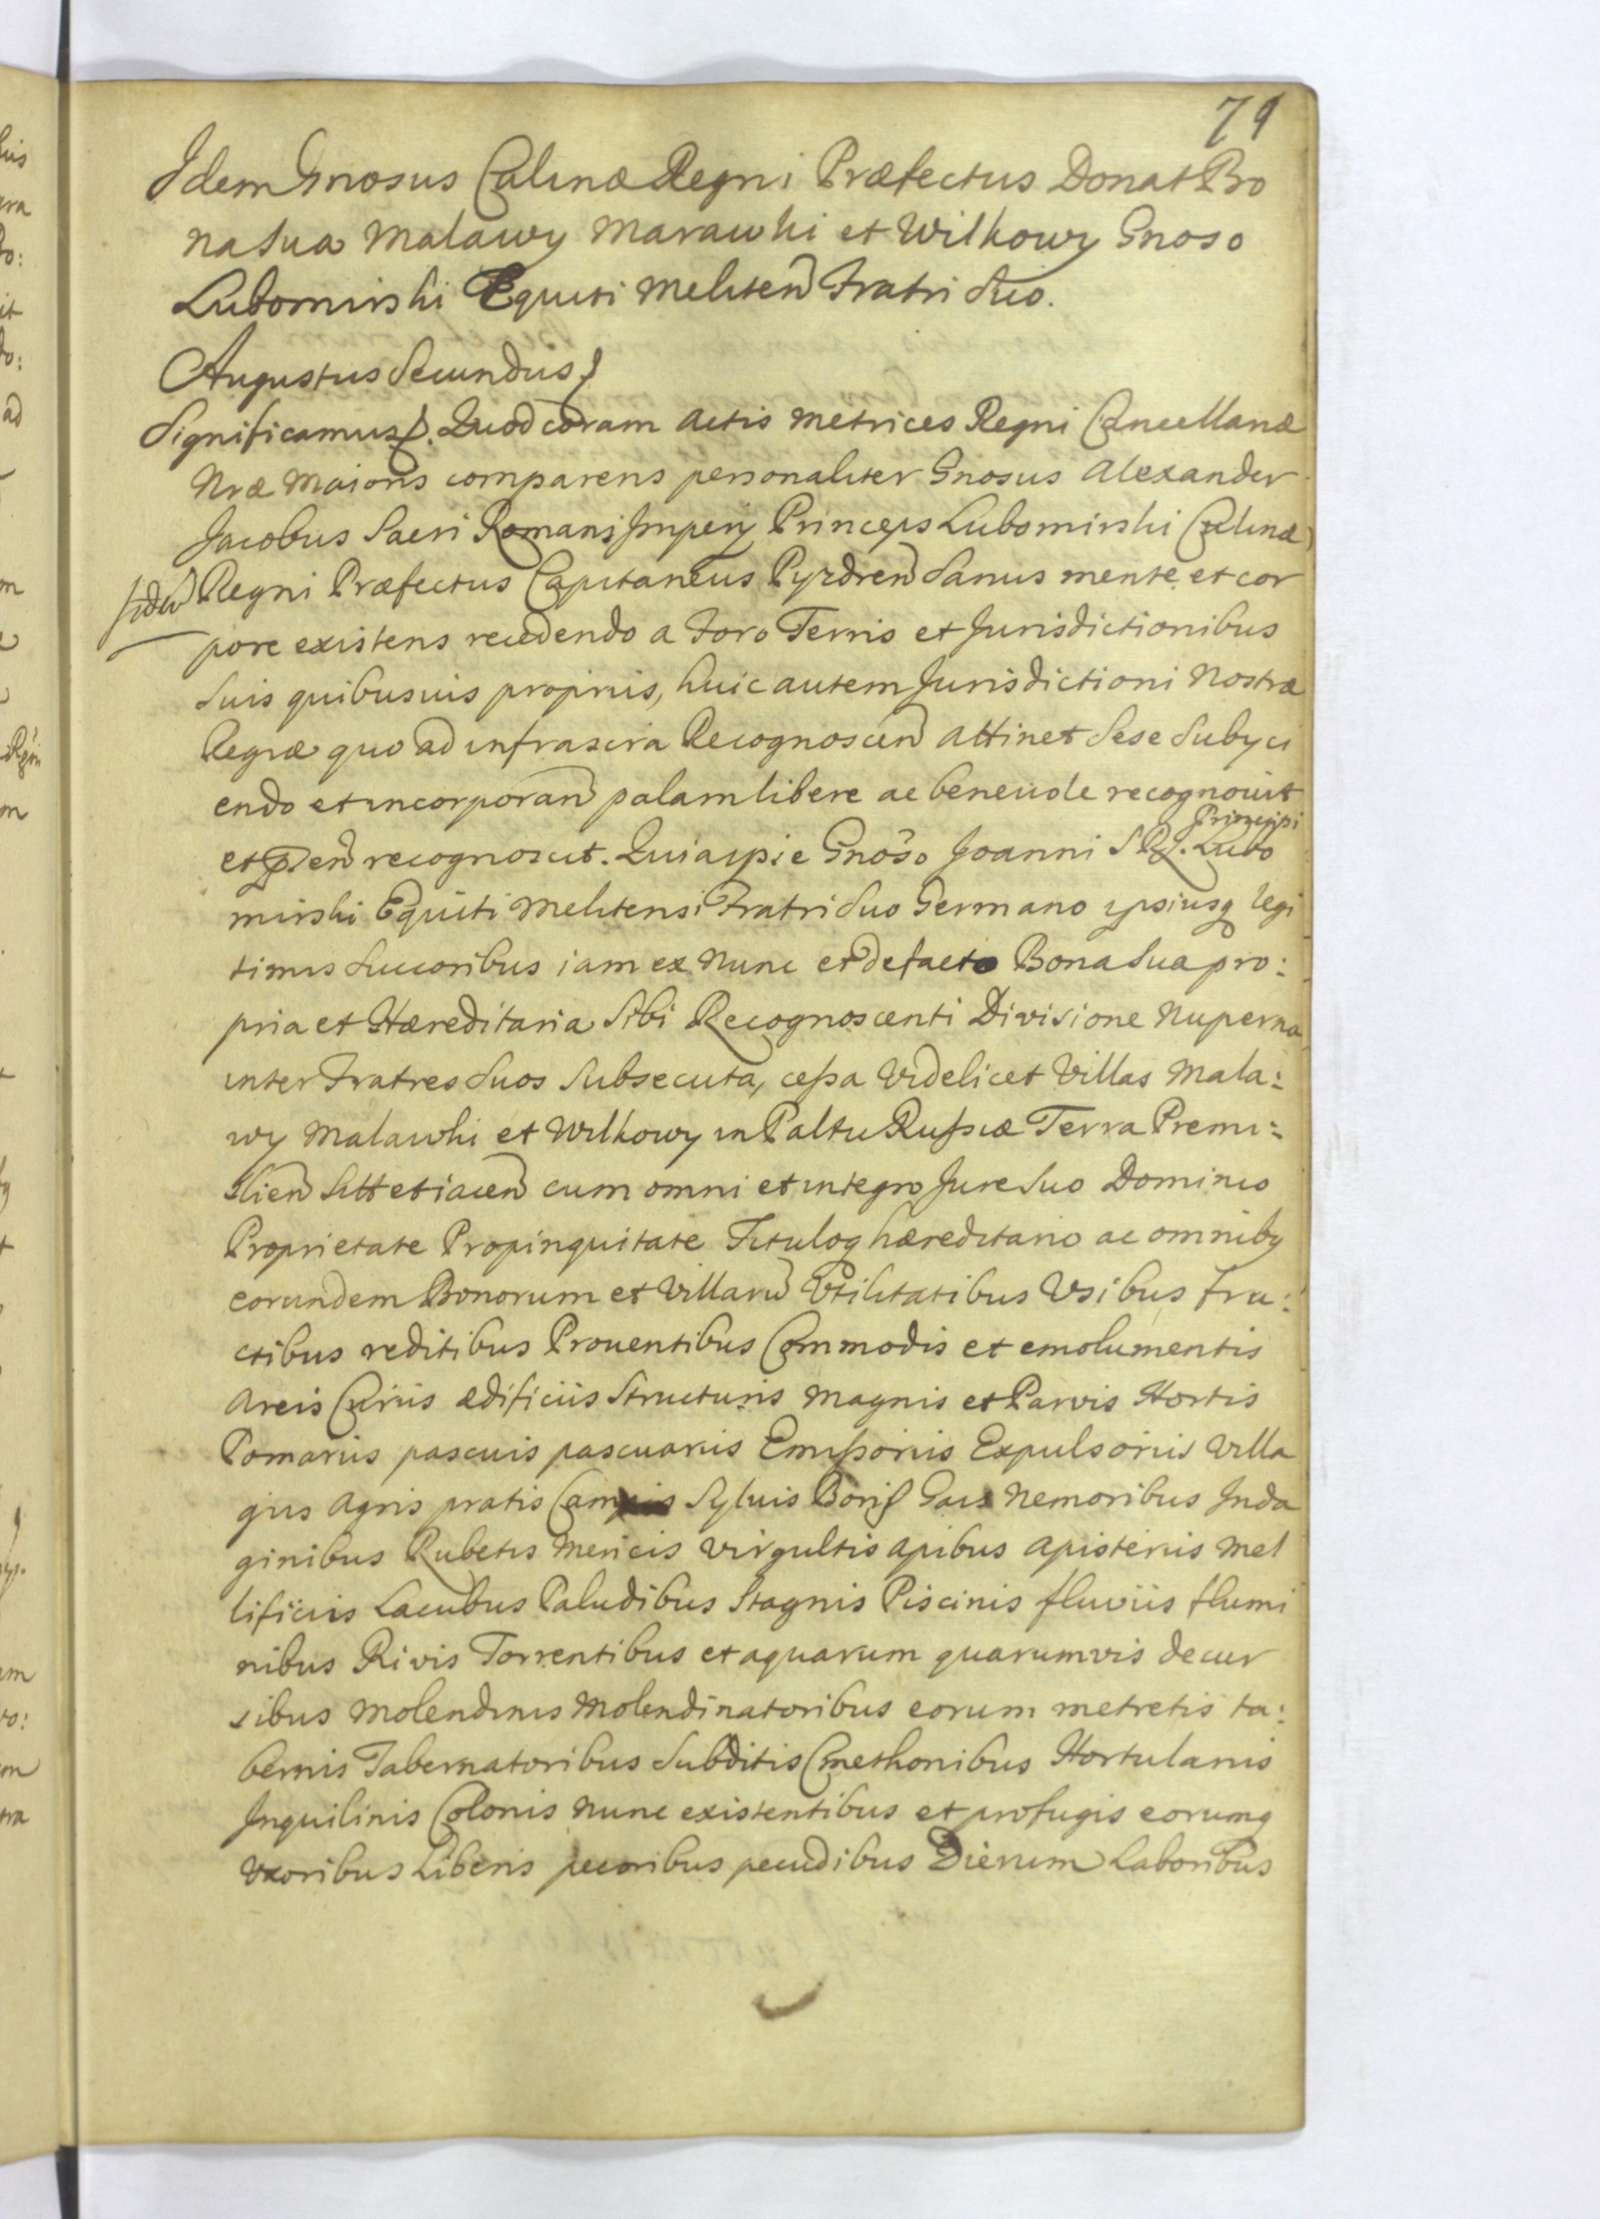 79
Idem Gnosus Culinæ Regni Præfectus Donat Bo
na sua Malawy Marawki et Wilkowy Gnoso
Lubomirski Equiti Meliten Fratri suo.
Augustus Secundus
Significamus. Quod coram Actis Metrices Regni Cancellariæ
Nræ Maioris comparens personaliter Gnosus Alexander
Jacobus Sacri Romani Imperij Princeps Lubomirski Culinæ
Regni Præfectus Capitaneus Pyzdren sanus mente et cor
pore existens recedendo a Foro Terris et Jurisdictionibus
suis quibusuis proprijs, huic autem Jurisdictioni Nostræ
Regiæ quo ad infrascra Recognoscen attinet sese subyci
endo et incorporan palam libere ac beneuole recognouit
Principi
et pñen recognoscit. Quia ipse Gnoso Joanni S R J. Lubo
mirski Equiti Melitensi Fratri suo Germano ipsiusq legi
timis succoribus iam ex nunc et de facto Bona sua pro:
pria et Hæreditaria sibi Recognoscenti Divisione nuperna
inter Fratres suos subsecuta, cessa videlicet Villas Mala:
wy Malawki et Wilkowy in Paltu Russiæ Terra Premi:
slien sitt et iacen cum omni et integro Jure suo Dominio
Proprietate Propinquitate Tituloq hæreditario ac omniby
eorundem Bonorum et Villarū Vtilitatibus Vsibus fru:
ctibus reditibus Prouentibus Commodis et emolumentis
Areis Curiis ædificiis structuris magnis et Parvis Hortis
Pomariis pascuis pascuariis Emissoriis Expulsoriis Villa
giis Agris pratis Campis Syluis Boris Gais Nemoribus Inda
ginibus Rubetis Mericis virgultis apibus apisteriis mel
lificiis Lacubus Paludibus Stagnis Piscinis fluviis flumi
nibus Rivis Torrentibus et aquarum quarumvis decur
sibus Molendinis Molendinatoribus eorum metretis ta:
bernis Tabernatoribus subditis Cmethonibus Hortulanis
Inquilinis Colonis nunc existentibus et profugis eorumq
Vxoribus Liberis pecoribus pecudibus Dierum Laboribus